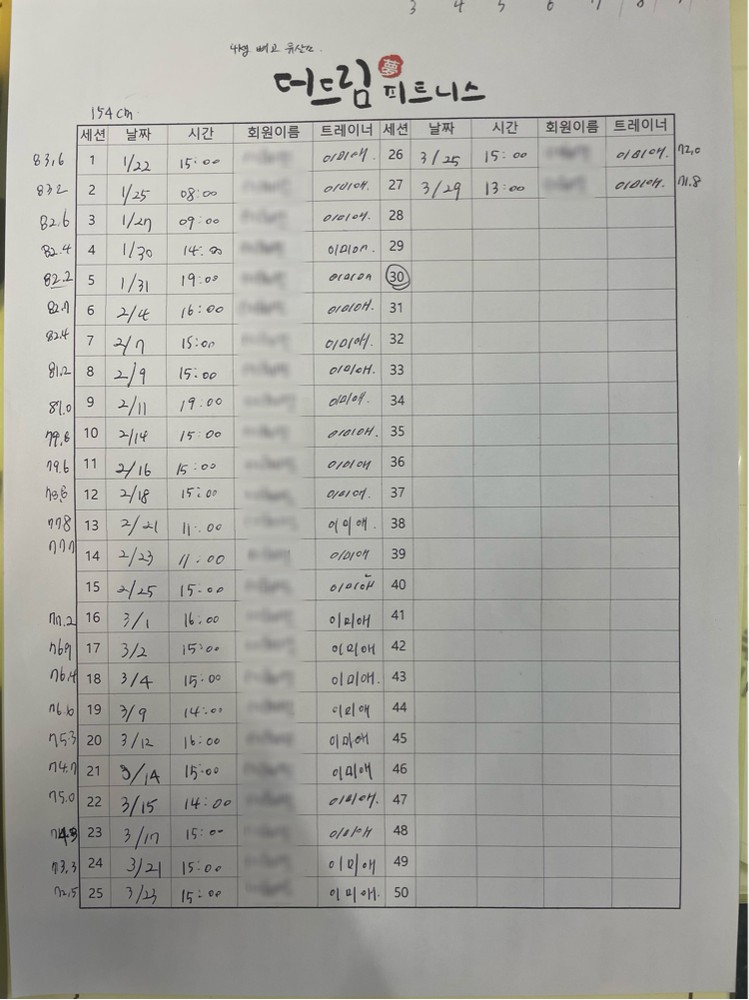 3 4 5 6 7 8
4kg 빼고 유산소.
더드림 夢 피트니스
154cm
세션 날짜 시간 회원이름 트레이너 세션 날짜 시간 회원이름 트레이너
83,6 1 1/22 15:00 이미애. 26 3/25 15:00 이미애. 72,0
832 2 1/25 08:00 이미애. 27 3/29 13:00 이미애. 71.8
82,6 3 1/27 09:00 이미애. 28
82.4 4 1/30 14:00 이미애 29
82.2 5 1/31 19:00 이미애 30
82.7 6 2/4 16:00 이미애. 31
82.4 7 2/7 15:00 이미애. 32
81.2 8 2/9 15:00 이미애. 33
81.0 9 2/11 19:00 이미애. 34
79.6 10 2/14 15:00 이미애. 35
79.6 11 2/16 15:00 이미애 36
12 2/18 15:00 이미애. 37
778 13 2/21 11:00 이미애. 38
777 14 2/23 11:00 이미애 39
15 2/25 15:00 이미애 40
77.2 16 3/1 16:00 이미애 41
769 17 3/2 15:00 이미애 42
76.4 18 3/4 15:00 이미애. 43
76.6 19 3/9 14:00 이미애 44
753 20 3/12 16:00 이미애 45
74.7 21 3/14 15:00 이미애 46
75.0 22 3/15 14:00 이미애. 47
743 23 3/17 15:00 이미애 48
73.3 24 3/21 15:00 이미애 49
72,5 25 3/23 15:00 이미애. 50